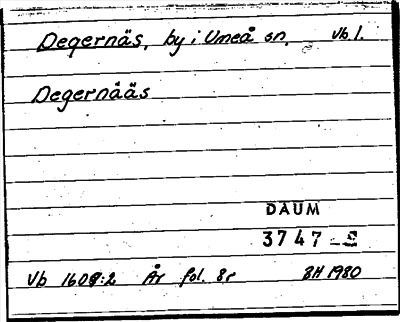 Degernäs, by i Umeå sn, Vb l.
Degernåås
DAUM
3747
Vb :2 År fol. 8r BH 1980